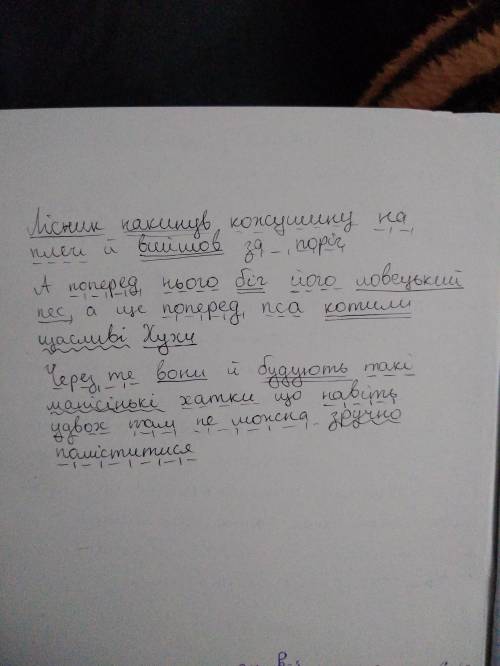 Лісник накинув кожушину на
плечі й вийшов за поріг
А поперед нього біг його ловецький
пес, а ще поперед пса котили
щасливі Хухи
Через те вони й будують такі
манісінькі хатки що навіть
удвох там не можна зручно
поміститися